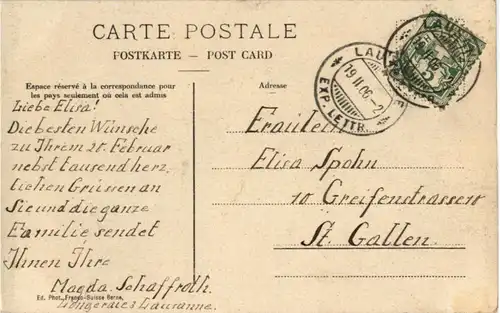 CARTE POSTALE
POSTKARTE – POST CARD
Espace réservé à la correspondance pour
les pays seulement où cela est admis
Adresse
Liebe Elisa!
Die besten Wünsche
zu Ihrem 21. Februar
nebst tausend herz,
lichen Grüssen an
Sie und die ganze
Familie sendet
Ihnen Ihre
Magda Schaffroth.
Lausanne.
Ed. Phot. Franco-Suisse Berne.
Fräulein
Elisa Spohn
10 Greifenstrasse 11
St. Gallen.
EXP. LETTR.